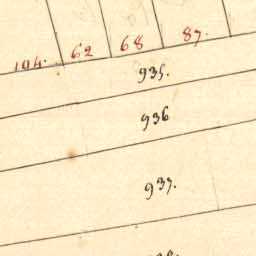 104. 62 68 87.
935.
936
937.